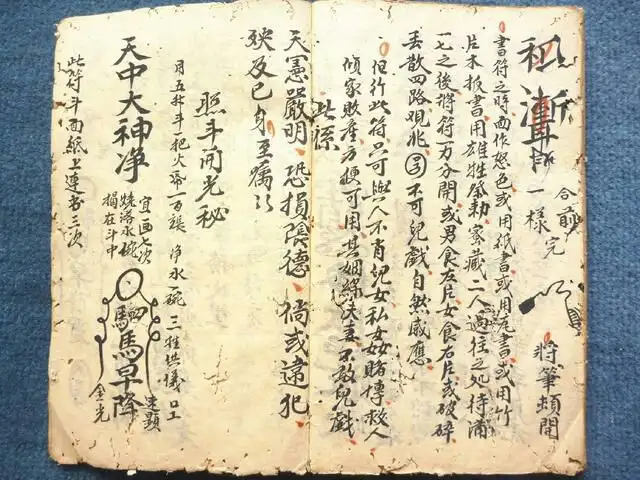 一樣完
合前
將筆頓開
書符之時面作怒色或用紙書或用瓦書或用竹
片木板書用雄牲祭勅密藏二人過往之处待滿
一七之後將符一万分開或男食左片女食右片或破碎
丢散四路現兆不可兒戲自然感應
但行此符只可與人不肖兒女私姦賭博救人
傾家敗產方便可用其姻緣夫妻不敢兒戲
此係
天憲嚴明恐損陰德倘或違犯
殃及己身至囑
照斗開光秘
月五升斗一把火一百張淨水一碗三牲供儀
天中大神净
宜画七次
燒落水碗
搨在斗中
驅馬早降
連顯
金光
此符斗面紙上連书三次